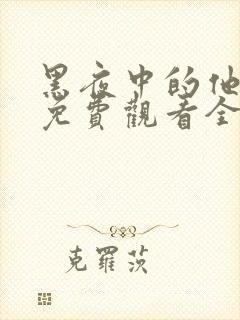 黑夜中的他
免費觀看全
克羅茨